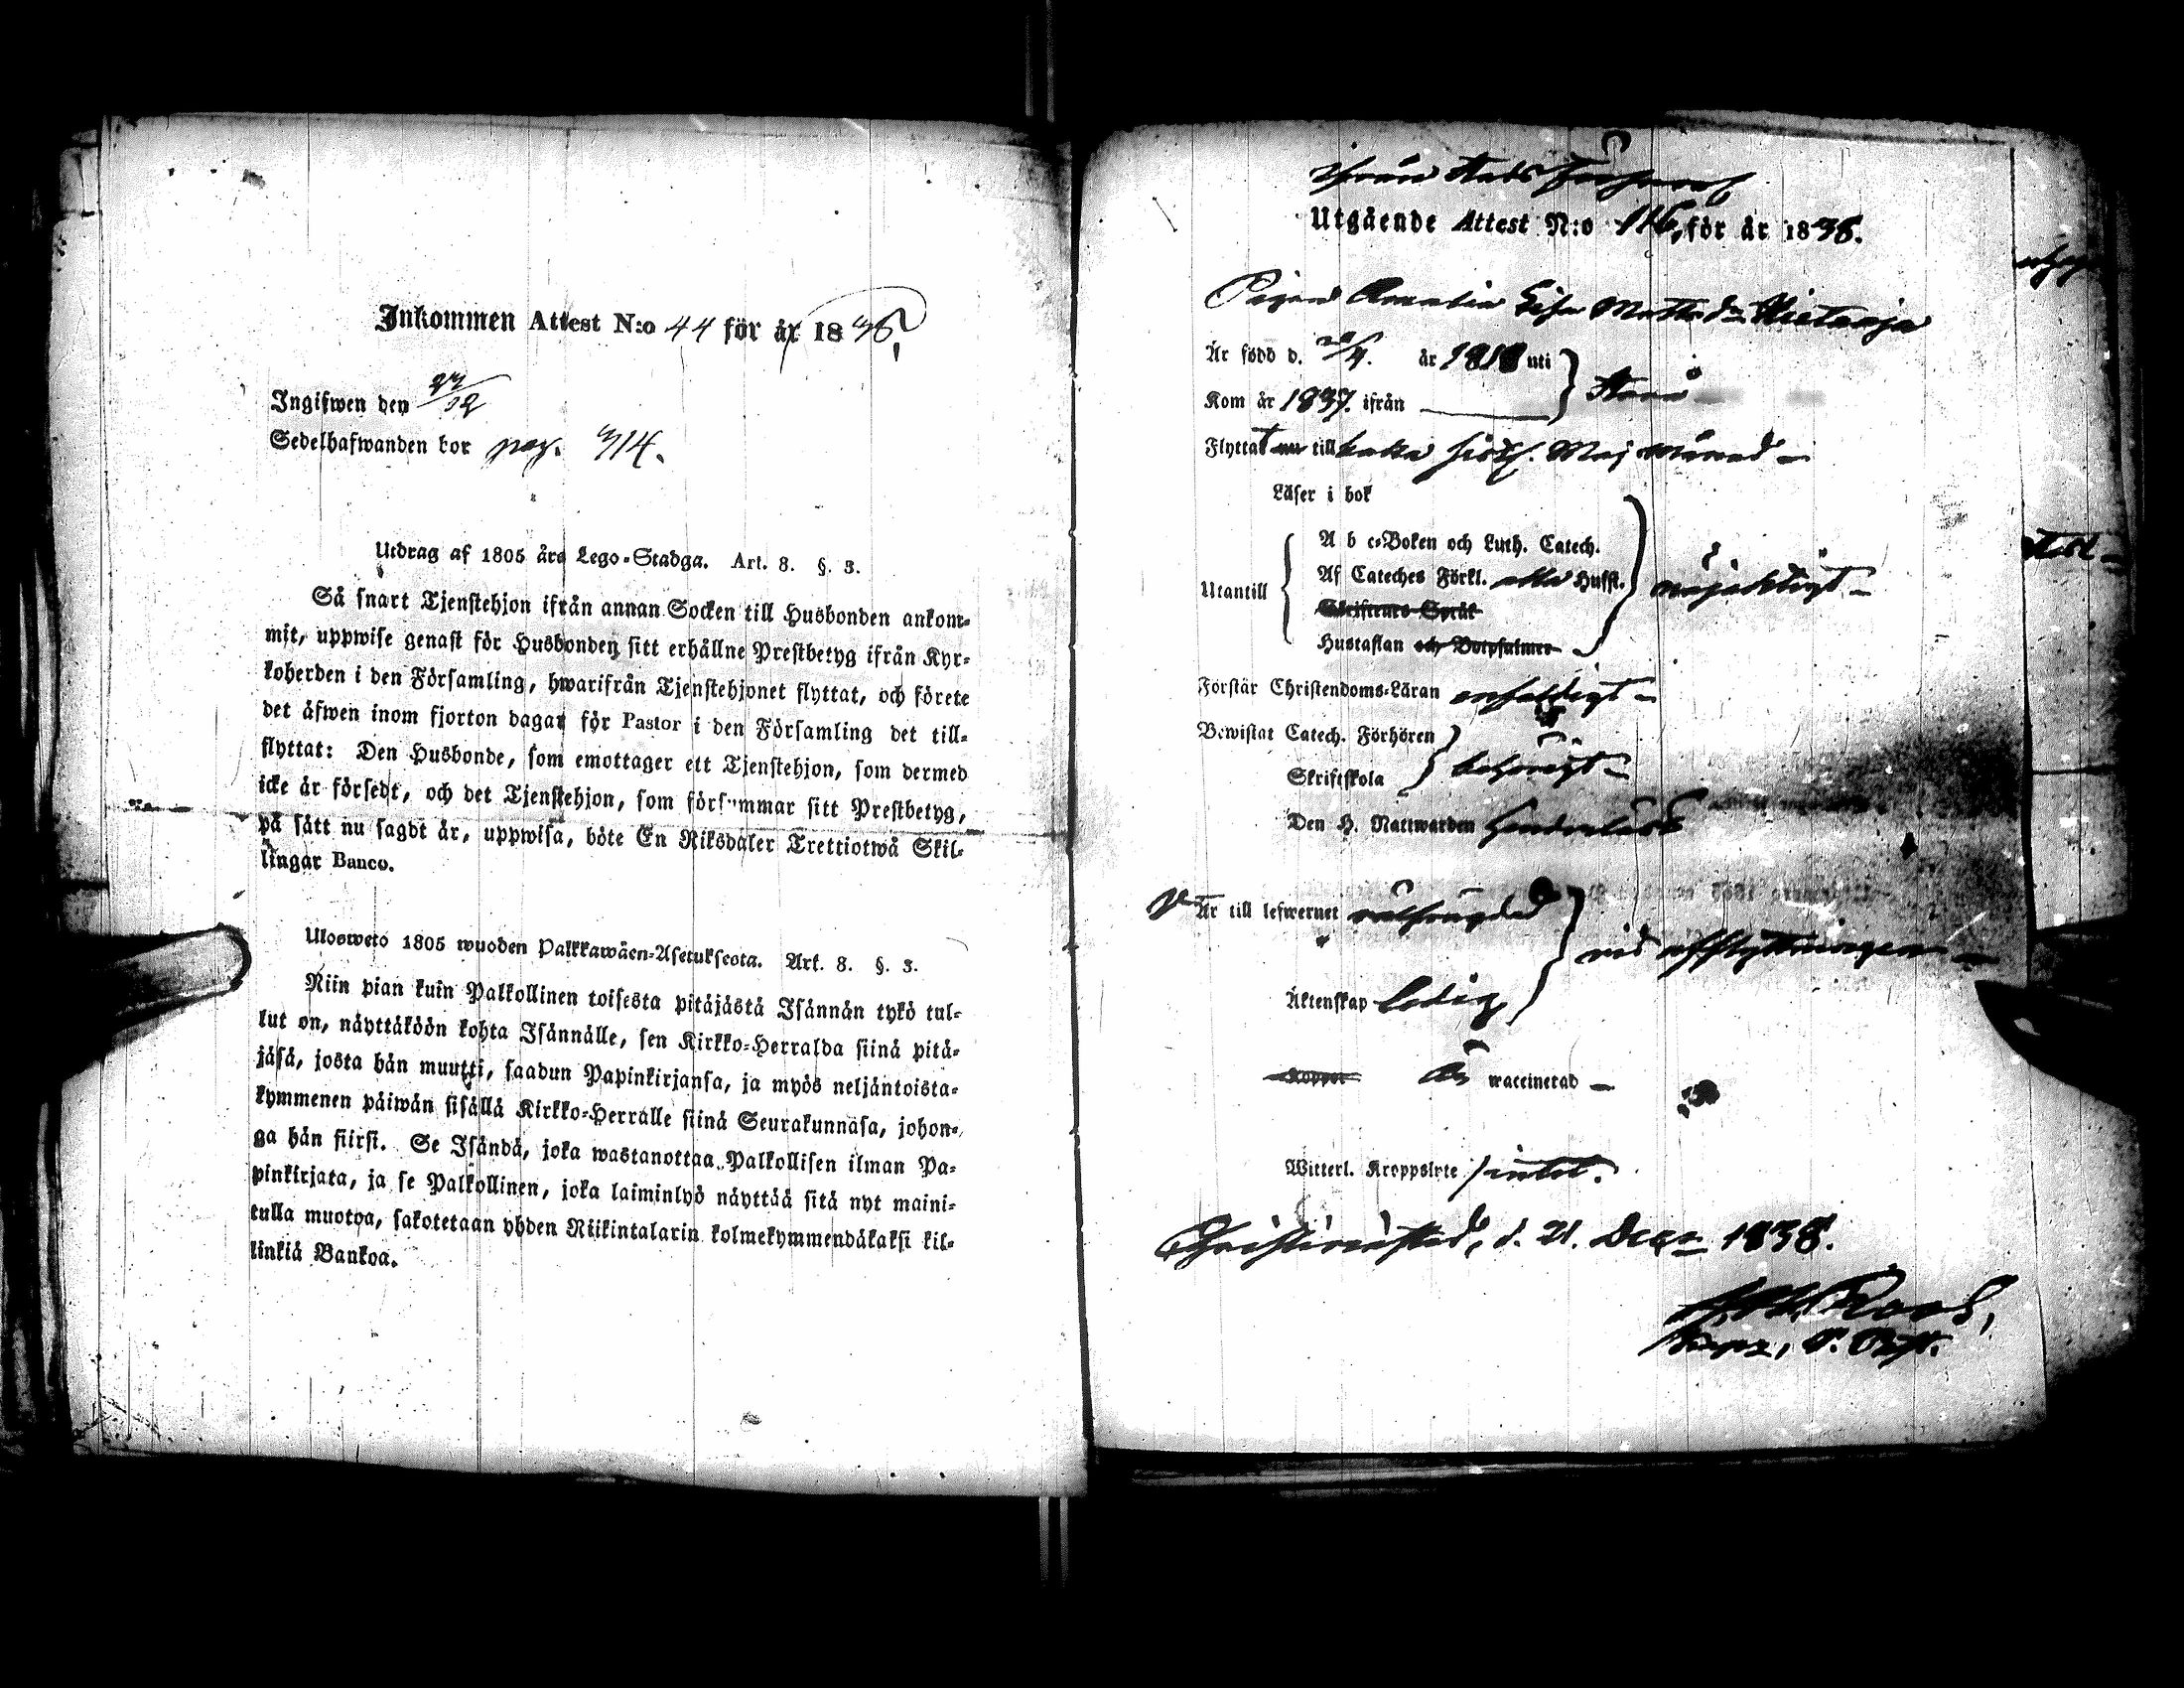 Inkommen Attest N:o 44 för år 1838
Ingifwen den 27/12
Sedelhafwanden bor pag. 314.
Utdrag af 1805 års Lego-Stadga. Art. 8. §. 3.
Så snart Tjenstehjon ifrån annan Socken till Husbonden ankom-
mit, uppwise genast för Husbonden sitt erhållne Prestbetyg ifrån Kyr-
koherden i den Församling, hwarifrån Tjenstehjonet flyttat, och förete
det äfwen inom fjorton dagar för Pastor i den Församling det till-
flyttat: Den Husbonde, som emottager ett Tjenstehjon, som dermed
icke är försedt, och det Tjenstehjon, som försummar sitt Prestbetyg,
på sätt nu sagdt är, uppwisa, böte En Riksdaler Trettiotwå Skil-
lingar Banco.
Ulosweto 1805 wuoden Palkkawäen-Asetuksesta. Art. 8. §. 3.
Niin pian kuin Palkollinen toisesta pitäjästä Isännän tykö tul-
lut on, näyttäköön kohta Isännälle, sen Kirkko-Herralda siinä pitä-
jäsä, josta hän muutti, saadun Papinkirjansa, ja myös neljäntoista-
kymmenen päiwän sisällä Kirkko-Herralle siinä Seurakunnasa, johon-
ga hän siirsi. Se Isändä, joka wastanottaa Palkollisen ilman Pa-
pinkirjata, ja se Palkollinen, joka laiminlyö näyttää sitä nyt maini-
tulla muotoa, sakotetaan yhden Riikintalarin kolmekymmendäkaksi kil-
linkiä Bankoa.
ifrån Stads
Utgående Attest N:o 116, för år 1838.
Pigan Lisa Mattsdr
Är född d. /4. år 1818 uti
Kom år 1837. ifrån
Flyttat nu till Maj månad
Läser i bok
Utantill
A b c-Boken och Luth. Catech.
Af Cateches Förkl. Hufst.
Skriftens Språk
Hustaflan och Botpsalmer
nöjaktigt
Förstår Christendoms-Läran enfaldigt
Bewistat Catech. Förhören
Skriftskola
behörigt
Den H. Nattwarden
Är till lefwernet wälfrägdad
Äktenskap ledig
vid afflyttningen
Koppor Är waccinerad
Witterl. Kroppslyte intet.
Christinestad, d. 21. Decr 1838.
Roos,